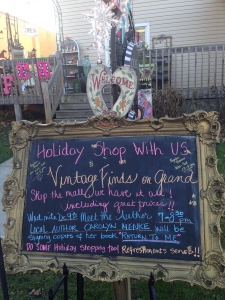 WELCOME
Holiday Shop With Us
Vintage Finds on Grand
Skip the mall, we have it all!
including great prices!!
Meet the Author 7-8:30 pm
Local AUTHOR CAROLYN MENKE will be
signing copies of her book "RETURN TO ME"
Do some Holiday shopping too! Refreshments served!!!